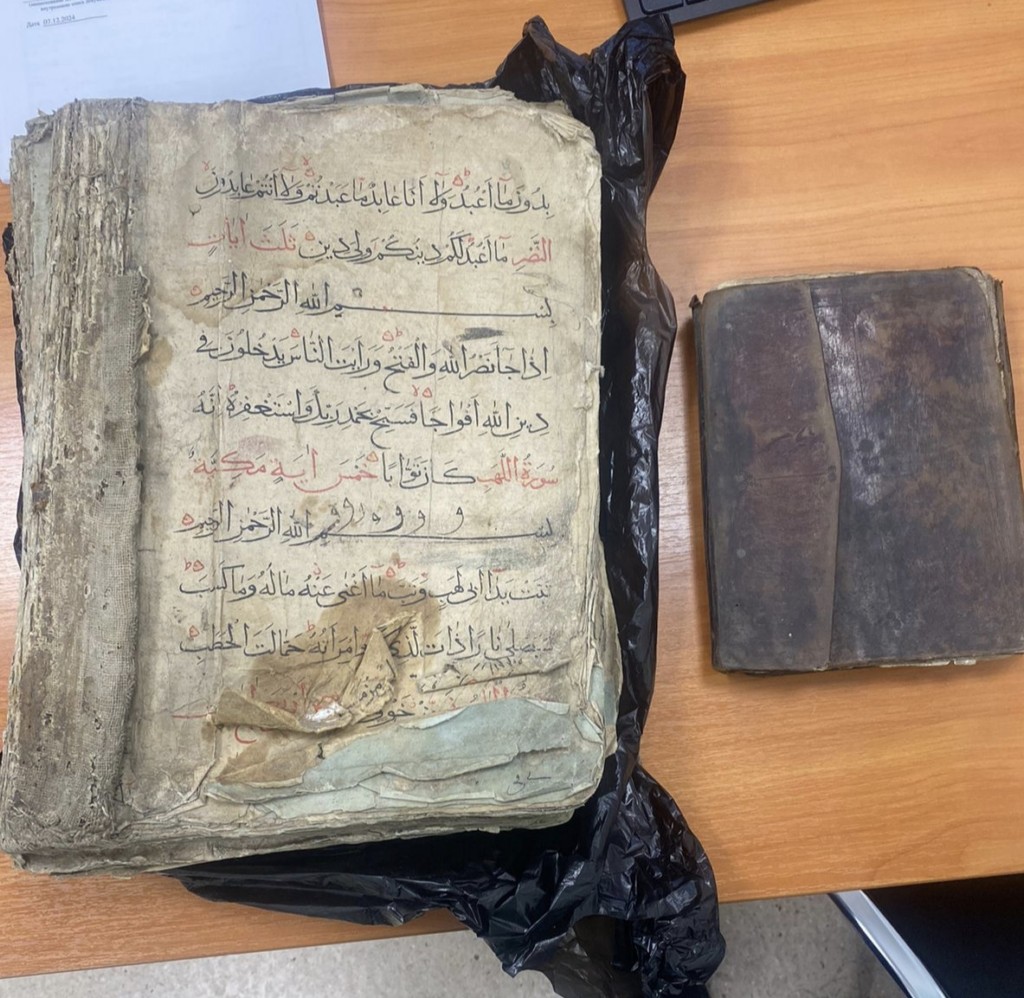 Дата 07.13.2024
بدون ما أعبد ولا أنا عابد ما عبدتم ولا أنتم عابدون
ما أعبد لكم دينكم ولي دين النصر ثلث آيات
بسم الله الرحمن الرحيم
إذا جا نصر الله والفتح ورأيت الناس يدخلون في
دين الله أفواجا فسبح بحمد ربك واستغفره إنه
كان توابا سورة اللهب خمس آية مكية
بسم الله الرحمن الرحيم
تبت يدا أبي لهب وتب ما أغنى عنه ماله وما كسب
سيصلى نارا ذات وامرأته حمالت الحطب